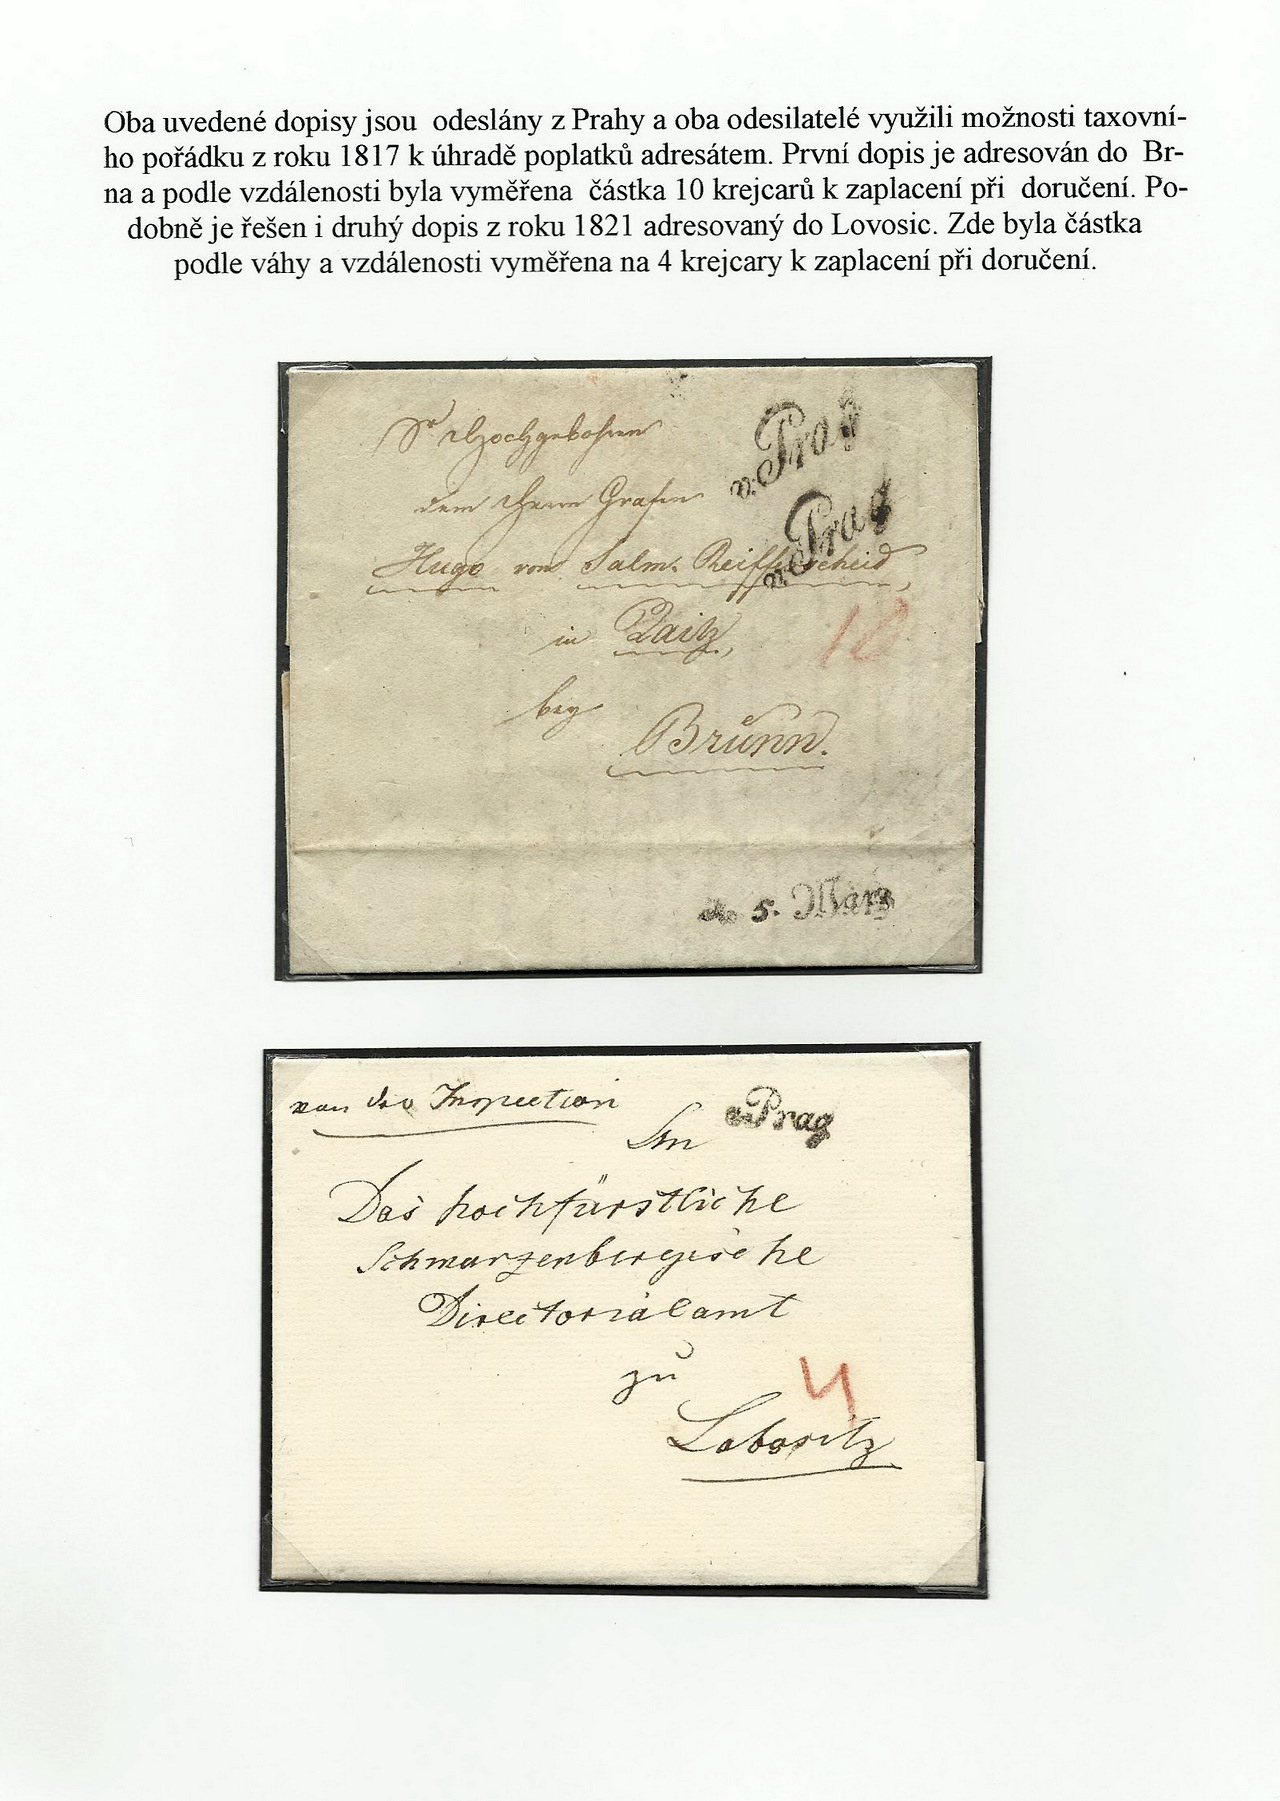 Oba uvedené dopisy jsou odeslány z Prahy a oba odesilatelé využili možnosti taxovní-
ho pořádku z roku 1817 k úhradě poplatků adresátem. První dopis je adresován do Br-
na a podle vzdálenosti byla vyměřena částka 10 krejcarů k zaplacení při doručení. Po-
dobně je řešen i druhý dopis z roku 1821 adresovaný do Lovosic. Zde byla částka
podle váhy a vzdálenosti vyměřena na 4 krejcary k zaplacení při doručení.
v. Prag
Hochgebohren
v. Prag
dem Herrn Grafen
Hugo von Salm. Reifferscheid,
in Raitz,
10
bey
Brünn.
5. März
von der Inspection
v. Prag
An
Das hochfürstliche
Schwarzenbergische
Directorialamt
zu
4
Lobositz